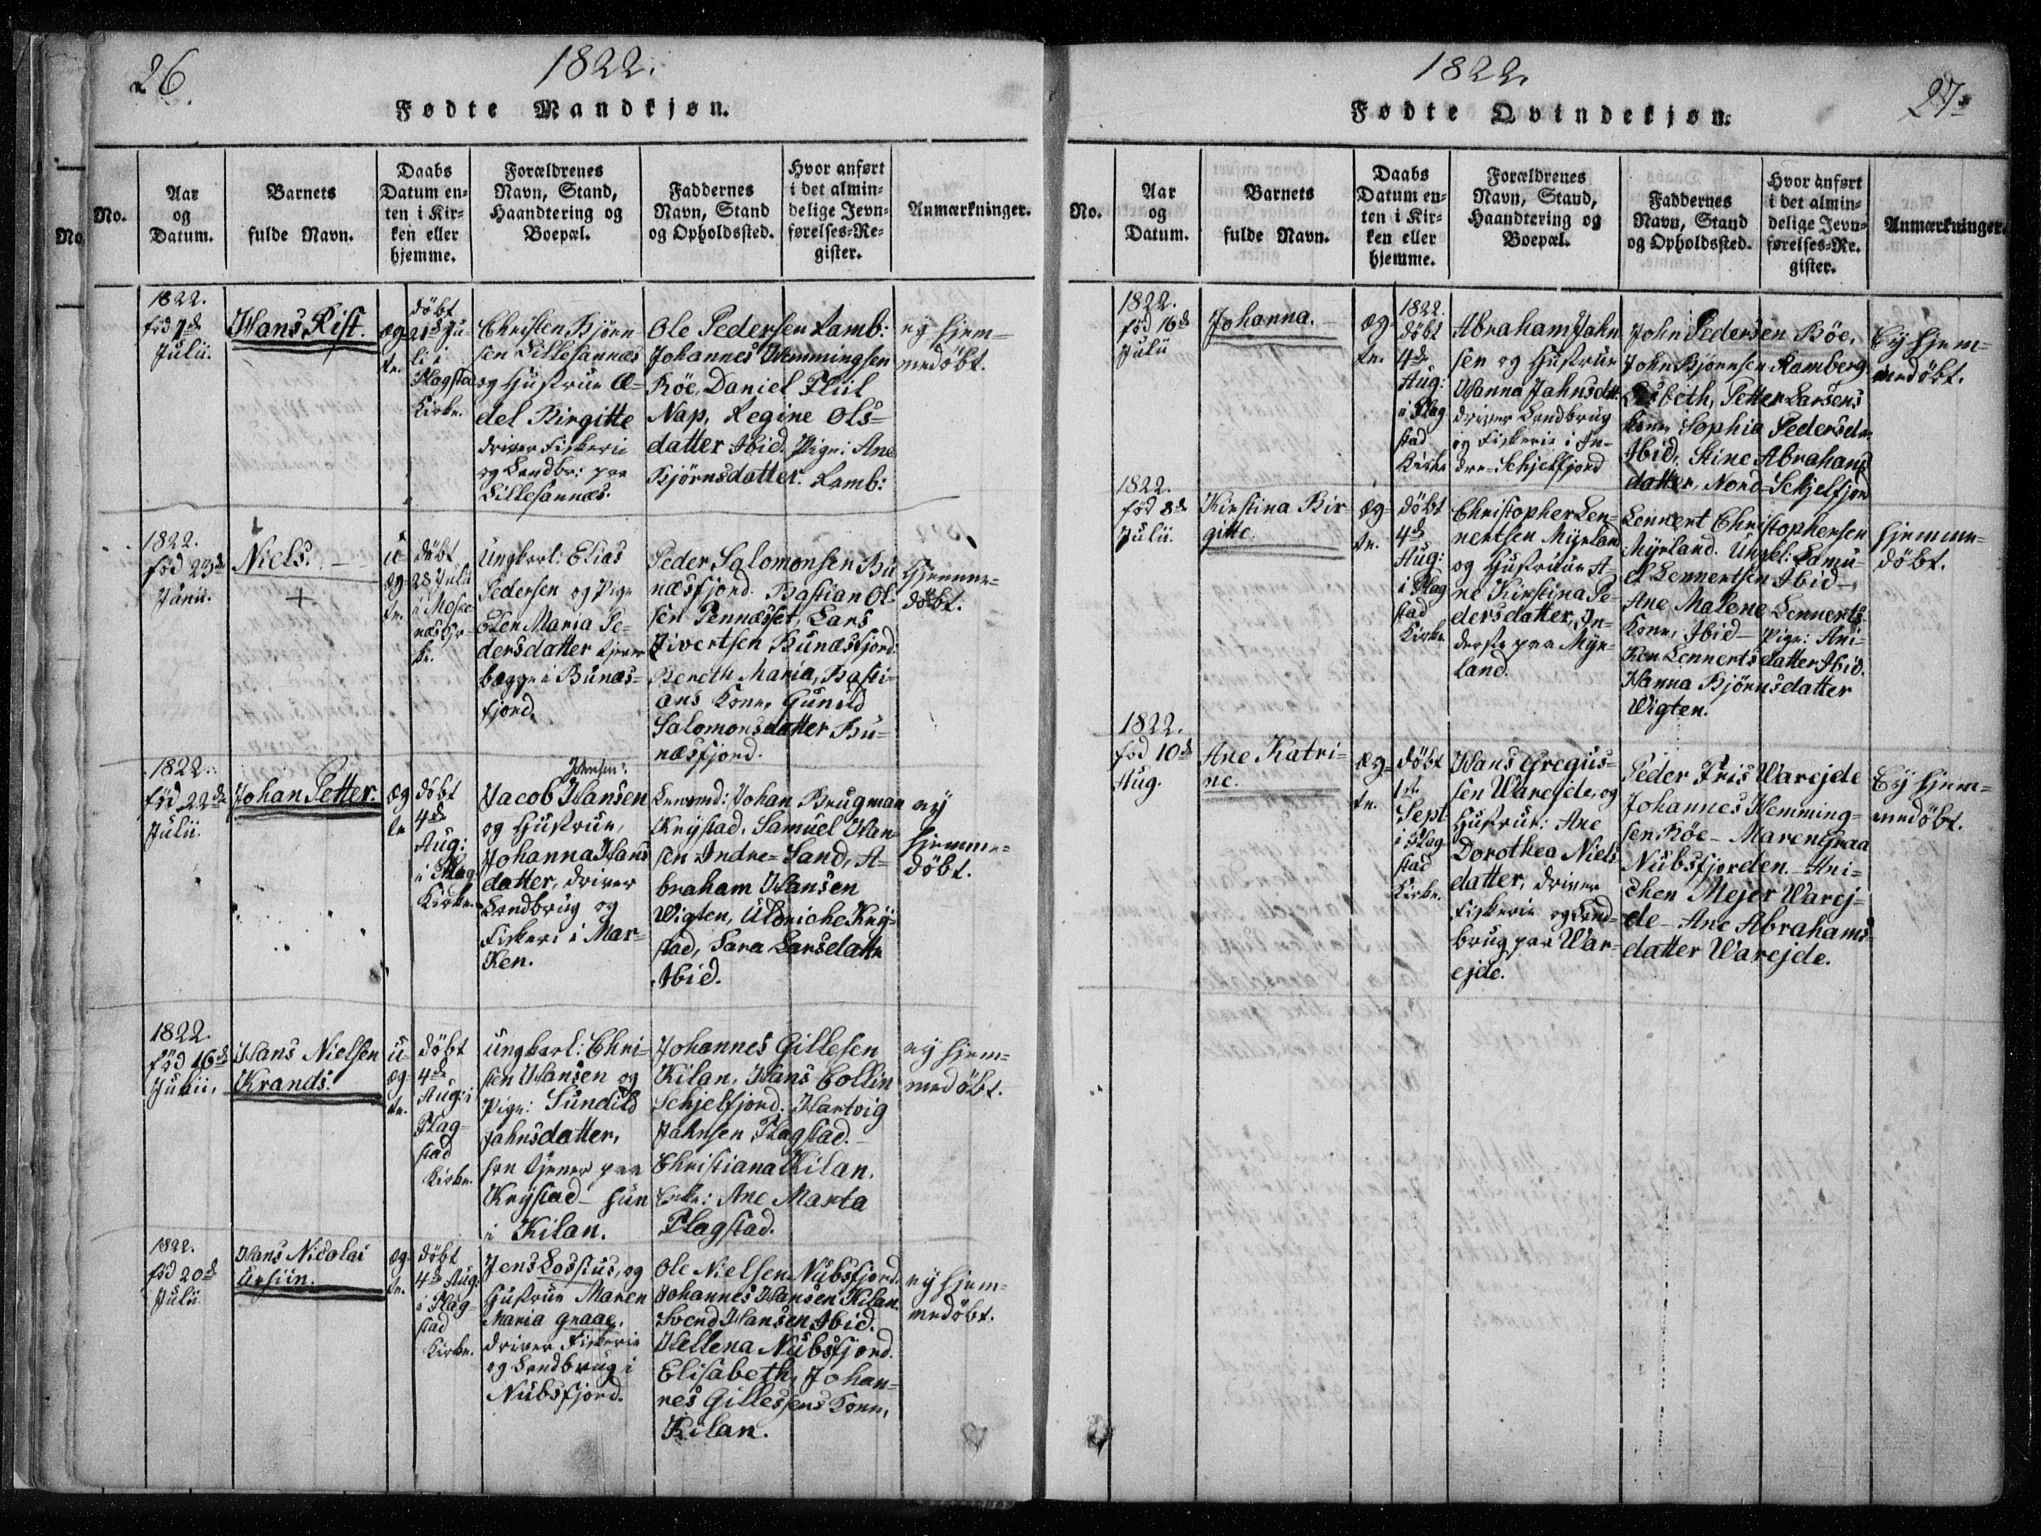 26.
1822.
Fødte Mandkjøn.
No.
Aar
og
Datum.
Barnets
fulde Navn.
Daabs
Datum en-
ten i Kir-
ken eller
hjemme.
Forældrenes
Navn, Stand,
Haandtering og
Boepæl.
Faddernes
Navn, Stand
og Opholdssted.
Hvor anført
i det almin-
delige Jevn-
førelses-Re-
gister.
Anmærkninger.
1822.
Julii.
Hans Rist.
æg-
te.
döbt
21de Ju-
li i
Flagstad
Kirke.
Christen Björn
sen Lillesannæs
og Hustrue
del Birgitte
driver Fiskeri
og Landbr: paa
Lillesannæs.
Ole Pedersen Ramb:
Johannes Hemmingsen
Röe, Daniel
Nap, Regine Ols-
datter Ibid. Pige: Ane
Björnsdatter. Ramb:
ey hjem-
medöbt.
1822.
föd 23de
Niels.
+
u
æg-
te.
döbt
28 Julii
i Mosk-
næs Kir-
ke.
Ungkarl: Elias
Pedersen og Pige
Elen Maria Pe-
dersdatter tjener
begge i Bunæs-
fjord.
Peder Salomonsen Bu
næsfjord. Bastian Ol-
sen Tennæsset, Lars
Sivertsen Bunæsfjord.
Bereth Maria, Basti-
ans Kone, Gunild
Salomonsdatter Bu-
næsfjord.
Hjemme-
döbt.
1822.
föd 22de
Julii.
Johan Petter.
æg
te
döbt
4de
Aug:
i Flag
Kirke.
Jacob Hansen
og Hustrue,
Johanna Hans
datter, driver
Landbrug og
Fiskeri i Mar-
ken.
Johan Brugman
Krystad, Samuel Han-
sen Indre-Sand, A-
braham Hansen
Wigten, Ulriche Kry-
stad, Sara Larsdatter
Ibid.
ey
hjemme-
döbt.
1822.
föd 16de
Hans Nielsen
Krands.
u-
æg-
te.
döbt
4de
Aug: i
Flag-
stad
Kirke.
Ungkarl: Chri-
sten Hansen og
Pige: Sundild
Jahnsdatter,
han tjener paa
Krystad - hun
i Kilan.
Johannes Gillesen
Kilan, Hans Collin
Schjelfjord. Hartvig
Jahnsen Flagstad.
Christiana Kilan.
Enke: Ane Marta
Flagstad.
ey hjem-
medöbt.
1822.
föd 20de
Julii
Hans Nicolai
Ursiin.
æg-
te.
döbt
4de Aug:
i Flag-
stad
Kirke.
Jens Lossius, og
Hustrue Maren
Maria Graae.
driver Fiskerie
og Landbrug i
Nubsfjord.
Ole Nielsen Nubsfjord.
Johannes Hansen Kilan.
Svend Hansen Ibid.
Hellena Nubsfjord.
Elisabeth, Johan-
nes Gillessens Kone,
Kilan.
ey hjem-
medöbt.
1822.
27.
Fødte Qvindekjøn.
No.
Aar
og
Datum.
Barnets
fulde Navn.
Daabs
Datum en-
ten i Kir-
ken eller
hjemme.
Forældrenes
Navn, Stand,
Haandtering og
Boepæl.
Faddernes
Navn, Stand
og Opholdssted.
Hvor anført
i det almin-
delige Jevn-
førelses-Re-
gister.
Anmærkninger.
1822.
föd 16de
Julii
Johanna.
æg-
te.
1822.
döbt
4de
Aug:
i Flag
stad
Kirke
Abraham Jahn
sen og Hustrue
Hanna Jahnsdtr.
driver Landbrug
og Fiskerie i In-
dre-Schjelfjord
John Pedersen Röe,
John Björnsen Ramberg
Lisbeth, Petter Larsens
Kone, Sophia Pedersdr
Ibid, Stine Abrahams
datter, Nord-Schjelfjor
Ey hjem-
medöbt.
1822.
föd 8de
Julii.
Kirstina Bir
gitte.
æg-
te.
döbt
4de
Aug:
i Flag
stad
Kirke.
Christopher Len-
nertsen Myrland
og Hustrue A-
ne Kirstina Pe-
dersdatter, In-
derste paa Myr-
land.
Lennert Christophersen
Myrland. Ungk: Samu-
el Lennertsen Ibid-
Ane Malene Lennerts
Kone, Ibid - Pige: Ani-
ken Lennertsdatter Ibid.
Hanna Björnsdatter
Wigten.
Hjemme-
döbt.
1822.
föd 10de
Aug.
Ane Katri-
ne.
æg-
te.
döbt
1te
Sept
i Flag
stad
Kirke.
Hans Gregus-
sen Warejde, og
Hustrue: Ane
Dorothea Niels
datter, driver
Fiskerie og Land-
brug paa War-
ejde.
Peder Friis Warejde
Johannes Hemming-
sen Röe - Maren Graa
Nubsfjorden. Ani-
chen Mejer Warej-
de - Ane Abrahams
datter Warejde.
Ey hjem-
medöbt.